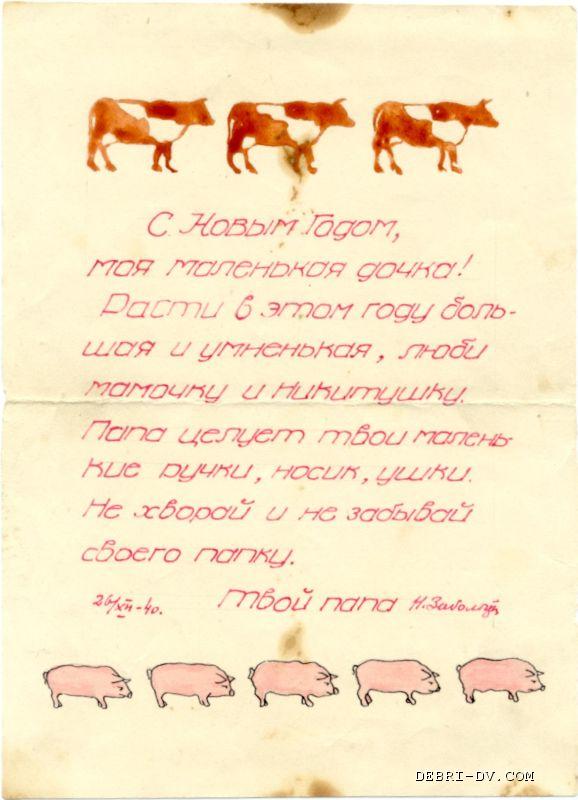 С Новым Годом,
моя маленькая дочка!
Расти в этом году боль-
шая и умненькая, люби
мамочку и Никитушку.
Папа целует твои малень-
кие ручки, носик, ушки.
Не хворай и не забывай
своего папку.
26/XII-40. Твой папа Н. Заболоц
DEBRI-DV.COM